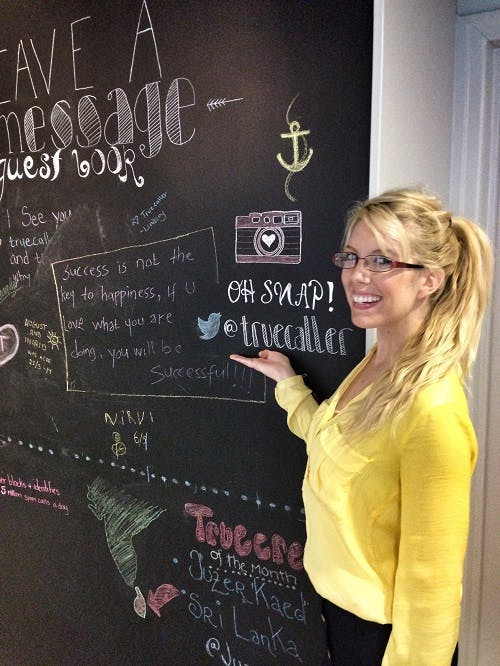 LEAVE A
message
guest book
I See you
truecall
and t
Truecaller
- Lindsay
Success is not the
key to happiness, If u
Love what you are
doing, you will be
Successful!!!
OH SNAP!
@truecaller
AUGUST
AND
INGRID
WAS HERE
NIRVI
6/4
er blocks + identifies
5 million spam calls a day
Truecre
of the month
Juzer Kaed
Sri Lanka
@Ju